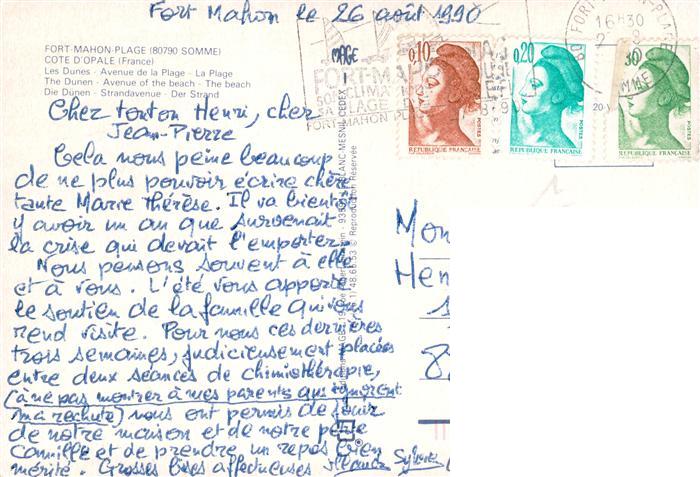 Fort Mahon le 26 août 1990
FORT-MAHON-PLAGE (80790 SOMME)
COTE D'OPALE (France)
Les Dunes - Avenue de la Plage - La Plage
The Dunen - Avenue of the beach - The beach
Die Dünen - Strandavenue - Der Strand
MAGE
0,10
0,20
POSTES
RÉPUBLIQUE FRANÇAISE
RÉPUBLIQUE FRANÇAISE
RÉPUBLIQUE FRANÇAISE
FORT-MAHON-PLAGE
16H30
FORT-MAHON
Cher tonton Henri, cher
Jean-Pierre
Cela nous peine beaucoup
de ne plus pouvoir écrire chère
tante Marie Thérèse. Il va bientôt
y avoir un an que survenait
la crise qui devait l'emporter.
Nous pensons souvent à elle
et à vous. L'été vous apporte
le soutien de la famille qui vous
rend visite. Pour nous ces dernières
trois semaines, judicieusement placées
entre deux séances de chimiothérapie,
(à ne pas montrer à mes parents qui ignorent
ma rechute) nous ont permis de jouir
de notre maison et de notre petite
Camille et de prendre un repos bien
mérité. Grosses bises affectueuses
© Reproduction Réservée
Mon
Hen
1
8